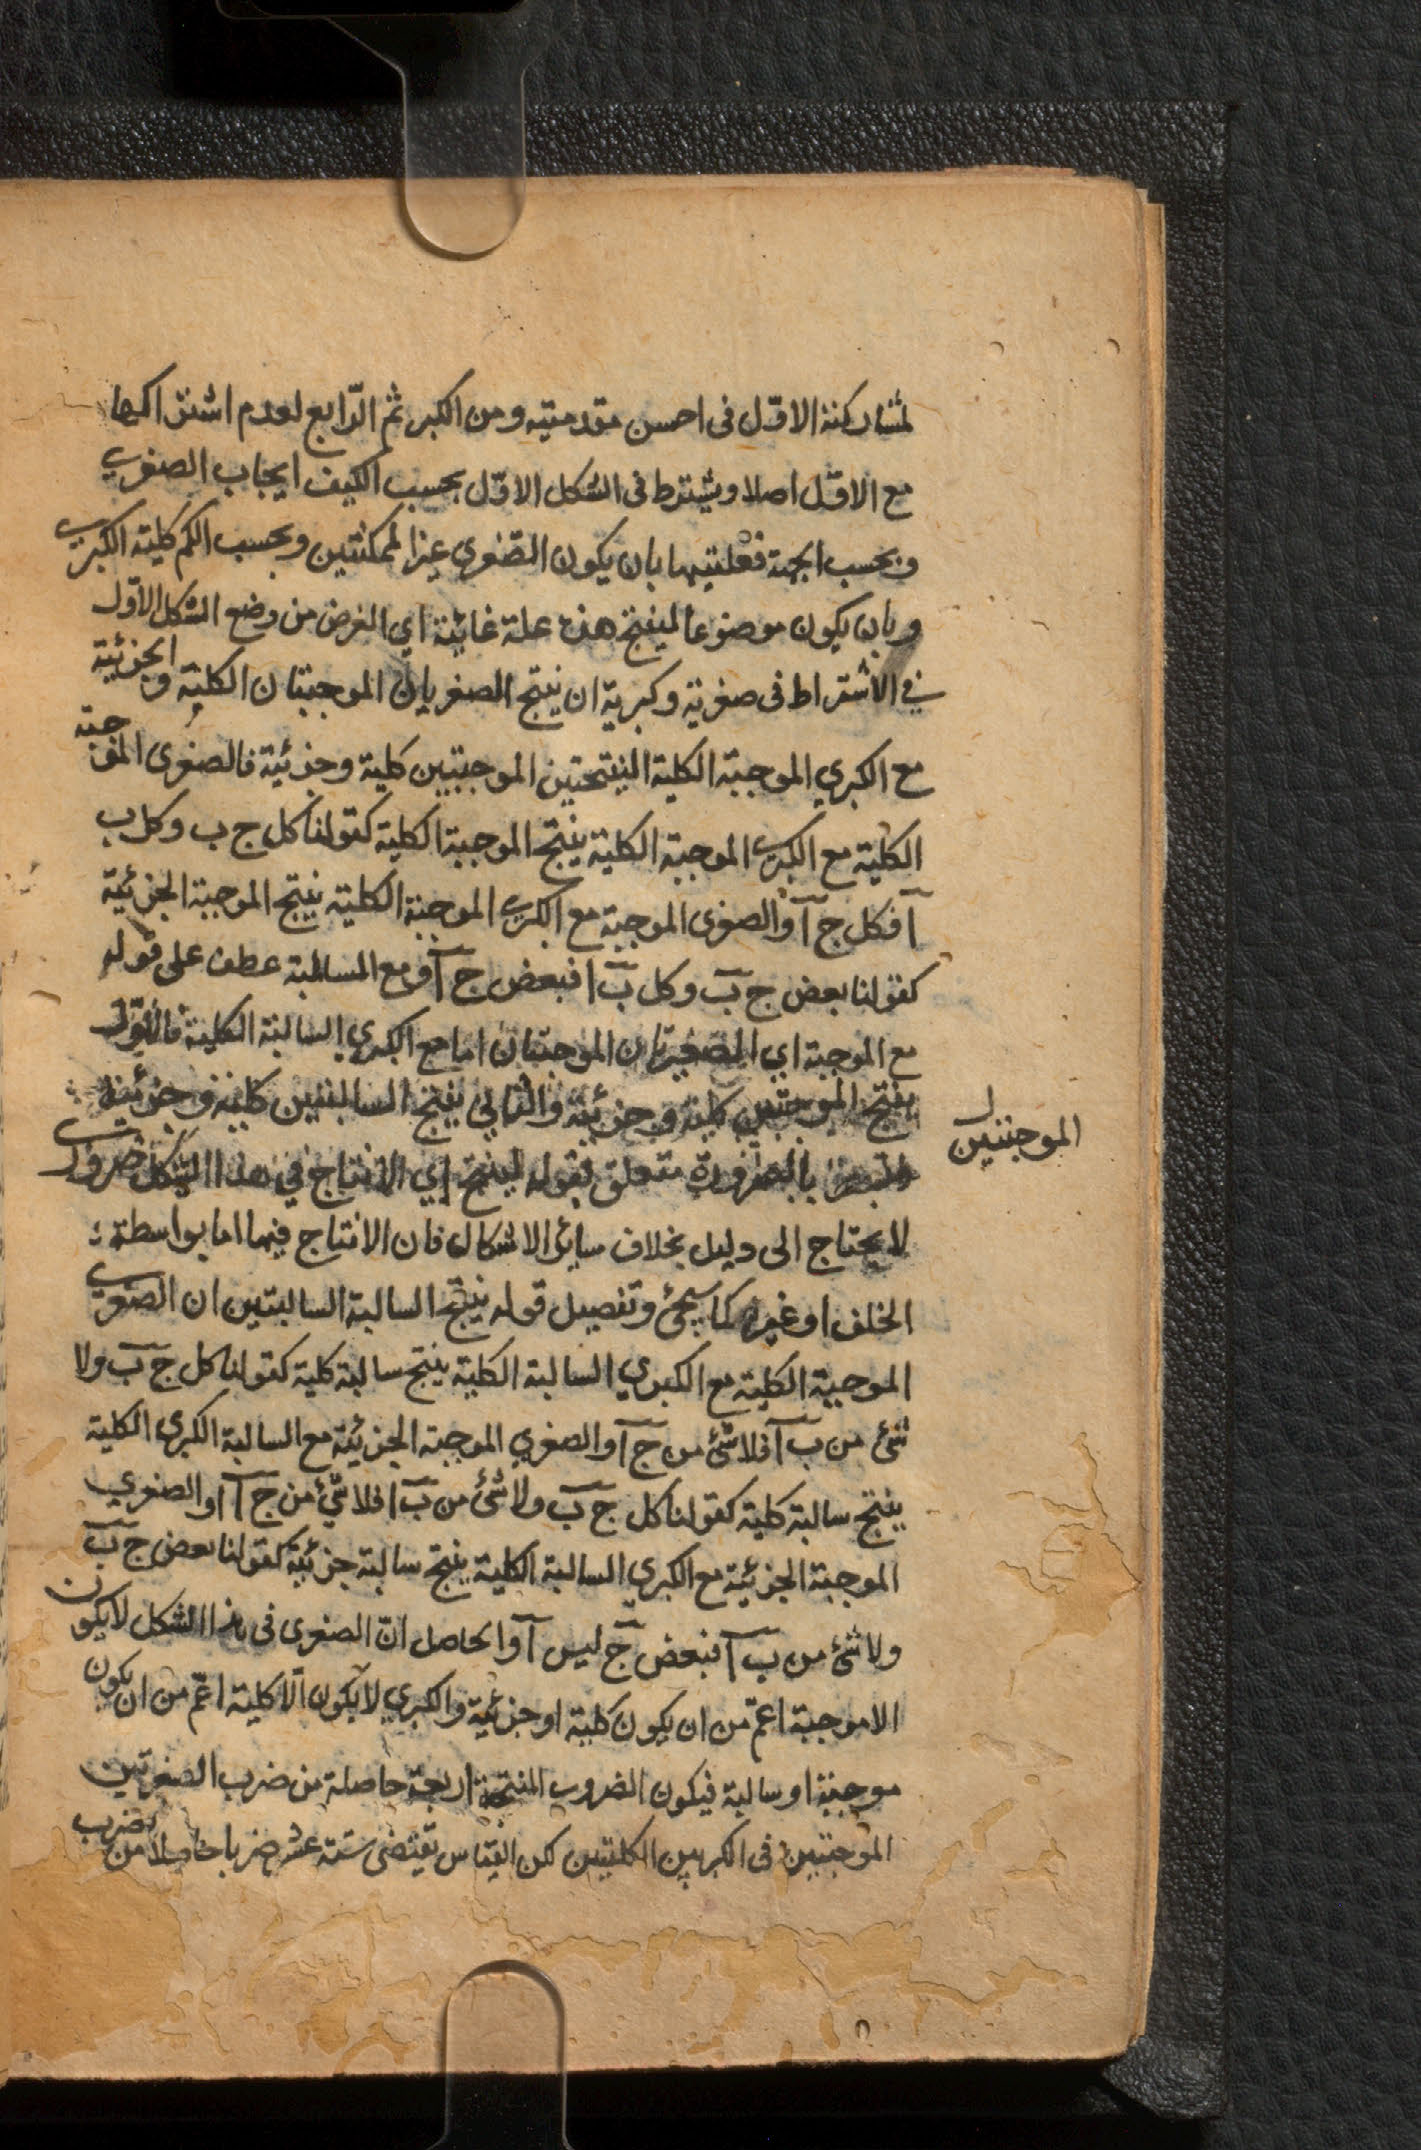 لمشاركته الاوّل فى احسن مقدمتيه ومن الكبر ثم الرّابع لعدم اشتراكها
مع الاوّل اصلا ويشترط فى الشكل الاوّل بحسب الكيف ايجاب الصغرى
وبحسب الجهة فعليتها بان يكون الصّغرى غير الممكنتين وبحسب الكم كلية الكبرى
وبان يكون موضوعا لينتج هذه علة غائية اي الغرض من وضع الشكل الاوّل
في الاشتراط فى صغريه وكبريه ان ينتج الصغريان الموجبتان الكلية والجزئية
مع الكبري الموجبة الكلية المنتجتين الموجبتين كلية وجزئية فالصغرى الموجبة
الكلية مع الكبرى الموجبة الكلية ينتج الموجبة الكلية كقولنا كل ج ب وكل ب
آ فكل ج آ والصغرى الموجبة مع الكبرى الموجبة الكلية ينتج الموجبة الجزئية
كقولنا بعض ج ب وكل ب ا فبعض ج آ ومع السالبة عطف على قوله
مع الموجبة اي الصغريان الموجبتان اما مع الكبري السالبة الكلية فالاوّل
ينتج الموجبتين كلية وجزئية والثاني ينتج السالبتين كلية وجزئية
الموجبتين
بالضرورة متعلق بقوله لينتج اي الانتاج في هذا الشكل ضرورى
لا يحتاج الى دليل بخلاف سائر الاشكال فان الانتاج فيها اما بواسطة
الخلف او غيره كما سيجئ وتفصيل قوله ينتج السالبة السالبتين ان الصغرى
الموجبة الكلية مع الكبري السالبة الكلية ينتج سالبة كلية كقولنا كل ج ب ولا
شئ من ب آ فلا شئ من ج آ والصغري الموجبة الجزئية مع السالبة الكبرى الكلية
ينتج سالبة كلية كقولنا كل ج ب ولا شئ من ب ا فلا شئ من ج آ او الصغرى
الموجبة الجزئية مع الكبري السالبة الكلية ينتج سالبة جزئية كقولنا بعض ج ب
ولا شئ من ب آ فبعض ج ليس آ والحاصل انّ الصغرى فى هذا الشكل لا يكون
الا موجبة اعمّ من ان يكون كلية او جزئية والكبري لا يكون الّا كلية اعمّ من ان يكون
موجبة او سالبة فيكون الضروب المنتجة اربعة حاصلة من ضرب الصغريين
الموجبتين فى الكبريين الكليتين لكن القياس يقتضى ستة عشر ضربا حاصلا من ضرب